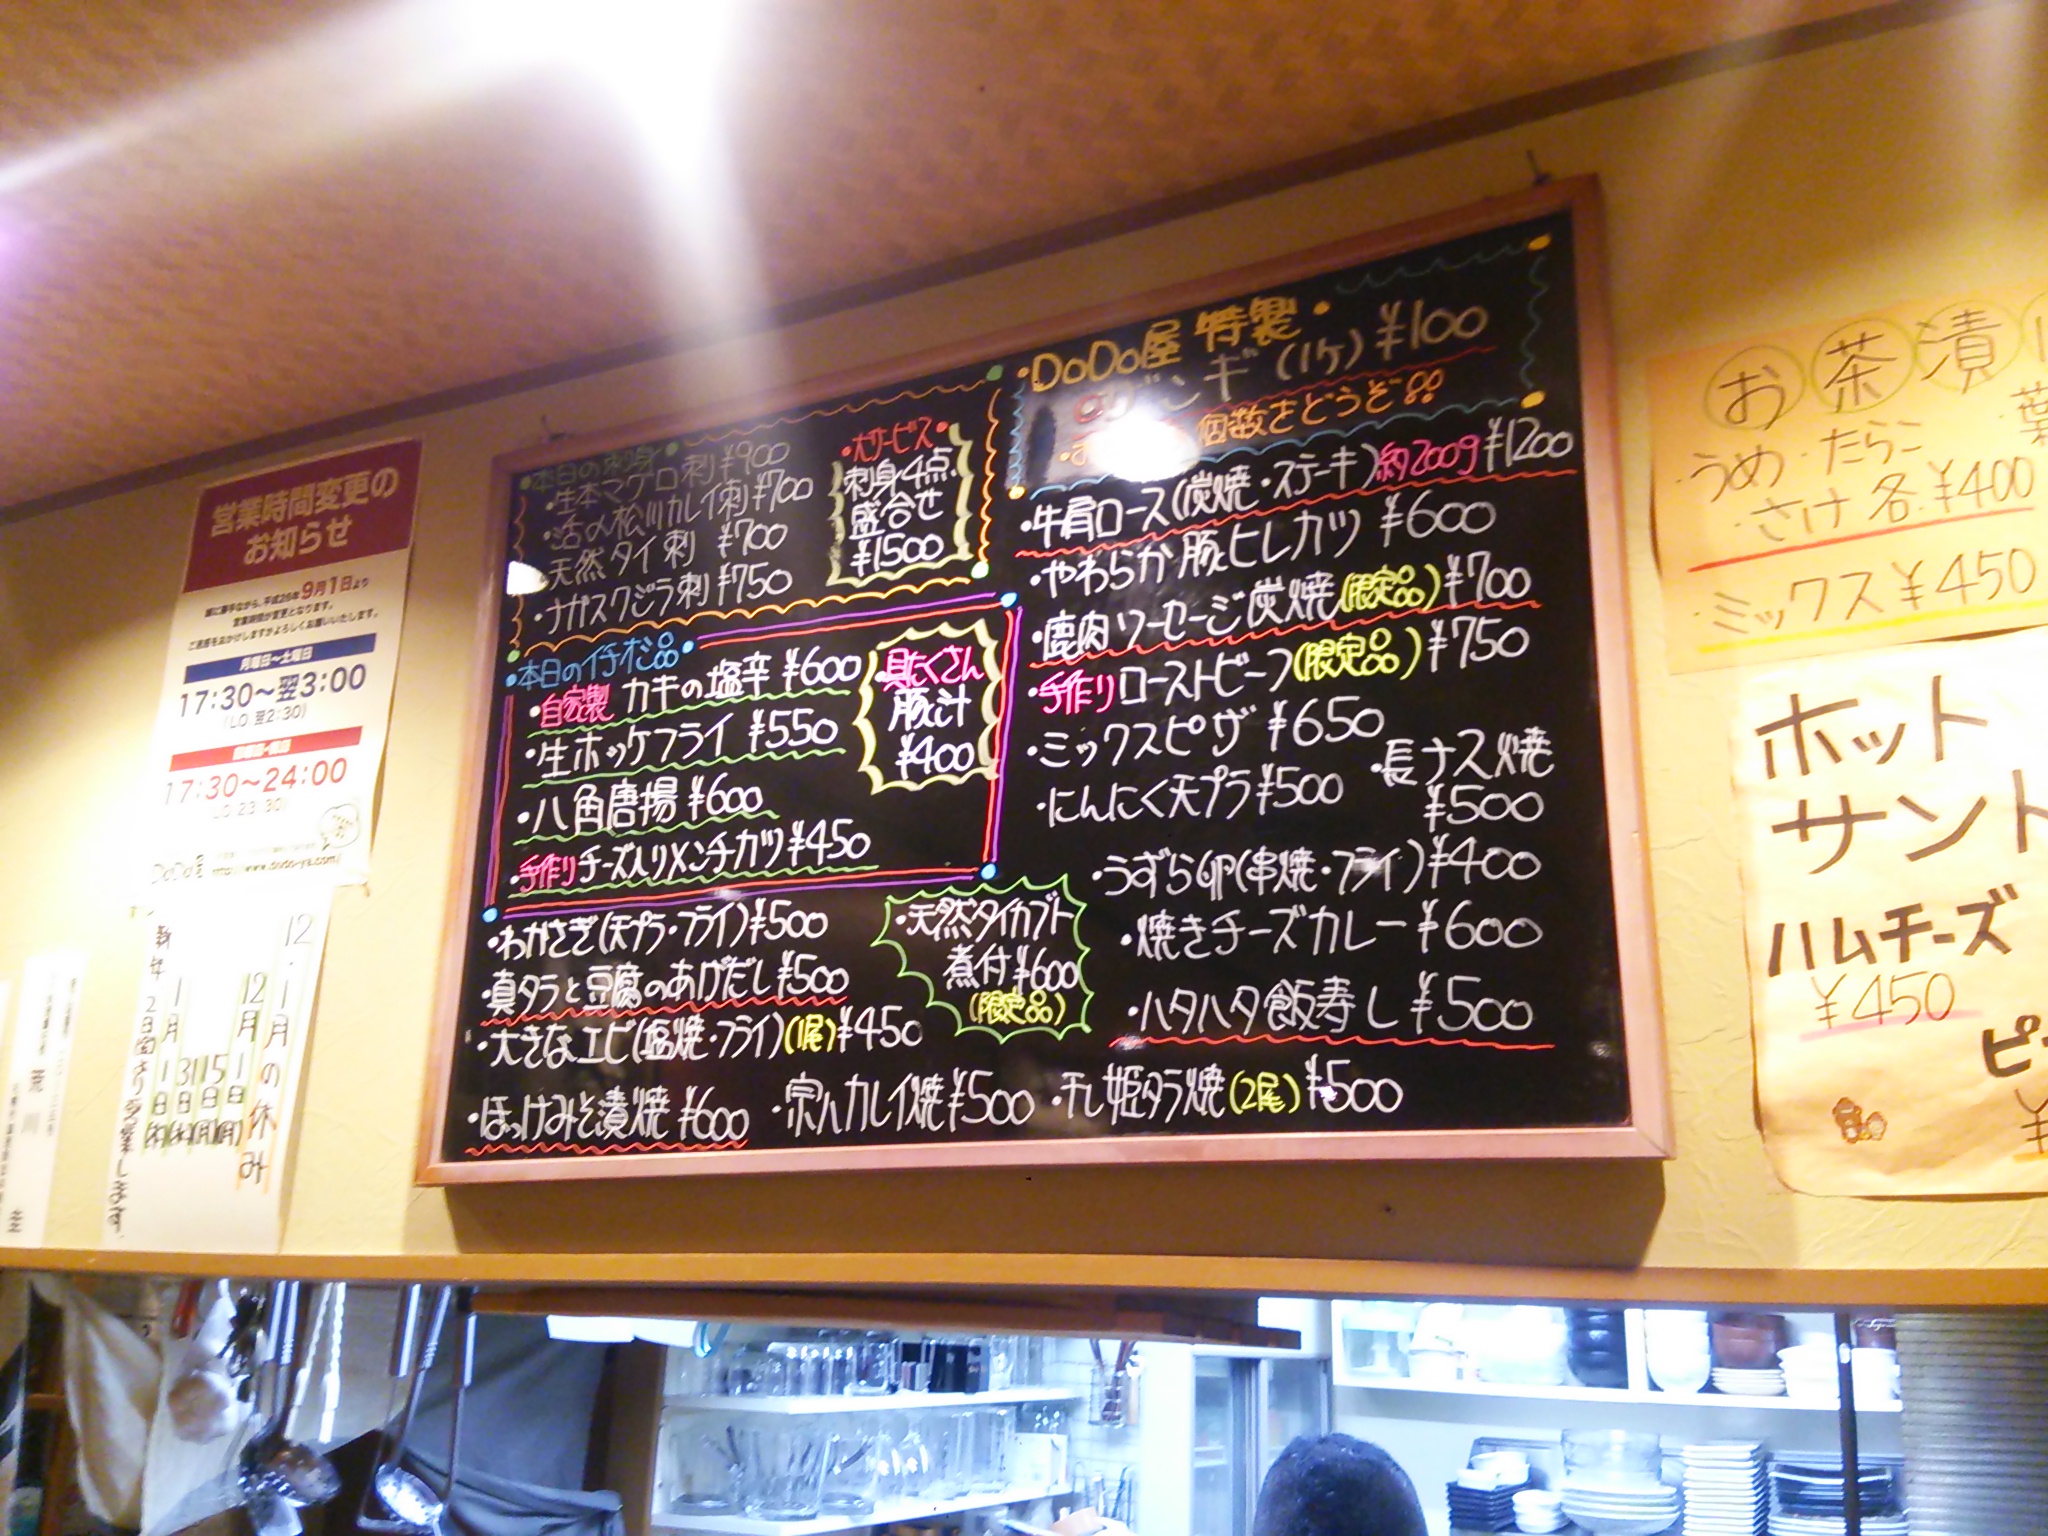 営業時間変更の
お知らせ
誠に勝手ながら、平成26年9月1日より
営業時間が変更となります。
ご迷惑をおかけしますがよろしくお願いいたします。
月曜日～土曜日
17:30～翌3:00
(LO 翌2:30)
17:30～24:00
(LO 23:30)
DoDo屋
http://www.dodo-ya.com/
12・1月の休み
12月 1日(月)
15日(月)
31日(水)
1月 1日(木)
新年2日(金)より営業します。
荒川
本日の刺身
・生本マグロ刺 ¥900
・活〆松川カレイ刺 ¥700
・天然タイ刺 ¥700
・ナガスクジラ刺 ¥750
・大サービス・
刺身4点
盛合せ
¥1500
・本日のイチオシ品・
・自家製 カキの塩辛 ¥600
・生ホッケフライ ¥550
・八角唐揚 ¥600
・手作りチーズ入りメンチカツ ¥450
具たくさん
豚汁
¥400
・わかさぎ(天プラ・フライ) ¥500
・真タラと豆腐のあげだし ¥500
・大きなエビ(塩焼・フライ)(1尾) ¥450
・天然タイカブト
煮付 ¥600
(限定品)
・ほっけみそ漬焼 ¥600
・宗八カレイ焼 ¥500
・干し姫タラ焼(2尾) ¥500
・DoDo屋 特製・
ザンギ(1ケ) ¥100
個数をどうぞ!!
・牛肩ロース(炭焼・ステーキ)約200g ¥1200
・やわらか豚ヒレカツ ¥600
・鹿肉ソーセージ炭焼(限定品) ¥700
・手作りローストビーフ(限定品) ¥750
・ミックスピザ ¥650
・にんにく天プラ ¥500
・長ナス焼
¥500
・うずら卵(串焼・フライ) ¥400
・焼きチーズカレー ¥600
・ハタハタ飯寿し ¥500
お茶漬
・うめ・たらこ
・さけ 各 ¥400
・ミックス ¥450
ホット
サント
ハムチーズ
¥450
ピ
¥